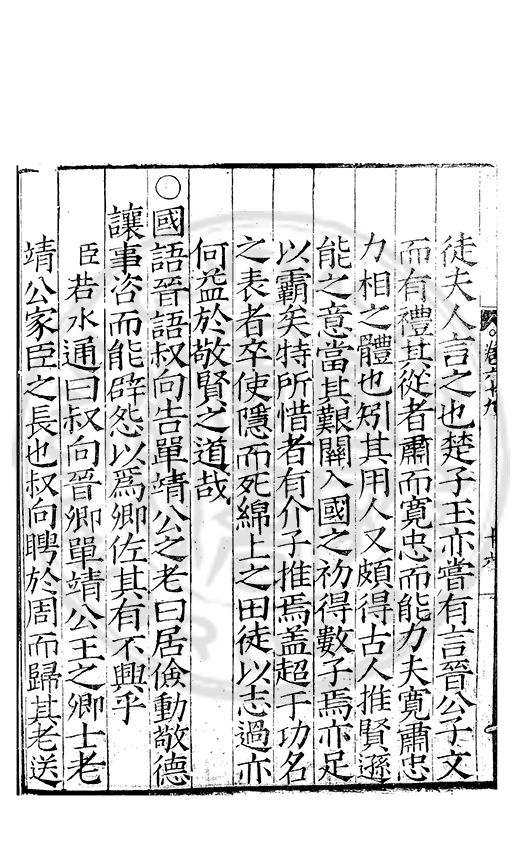 徒夫人言之也楚子玉亦嘗有言晉公子文
而有禮其從者肅而寬忠而能力夫寬肅忠
力相之體也矧其用人又頗得古人推賢遜
能之意當其艱關入國之初得數子焉亦足
以霸矣特所惜者有介子推焉蓋超于功名
之表者卒使隱而死綿上之田徒以志過亦
何益於敬賢之道哉
○國語晉語叔向告單靖公之老曰居儉動敬德
讓事咨而能辟怨以爲卿佐其有不興乎
臣若水通曰叔向晉卿單靖公王之卿士老
靖公家臣之長也叔向聘於周而歸其老送
卷六十九